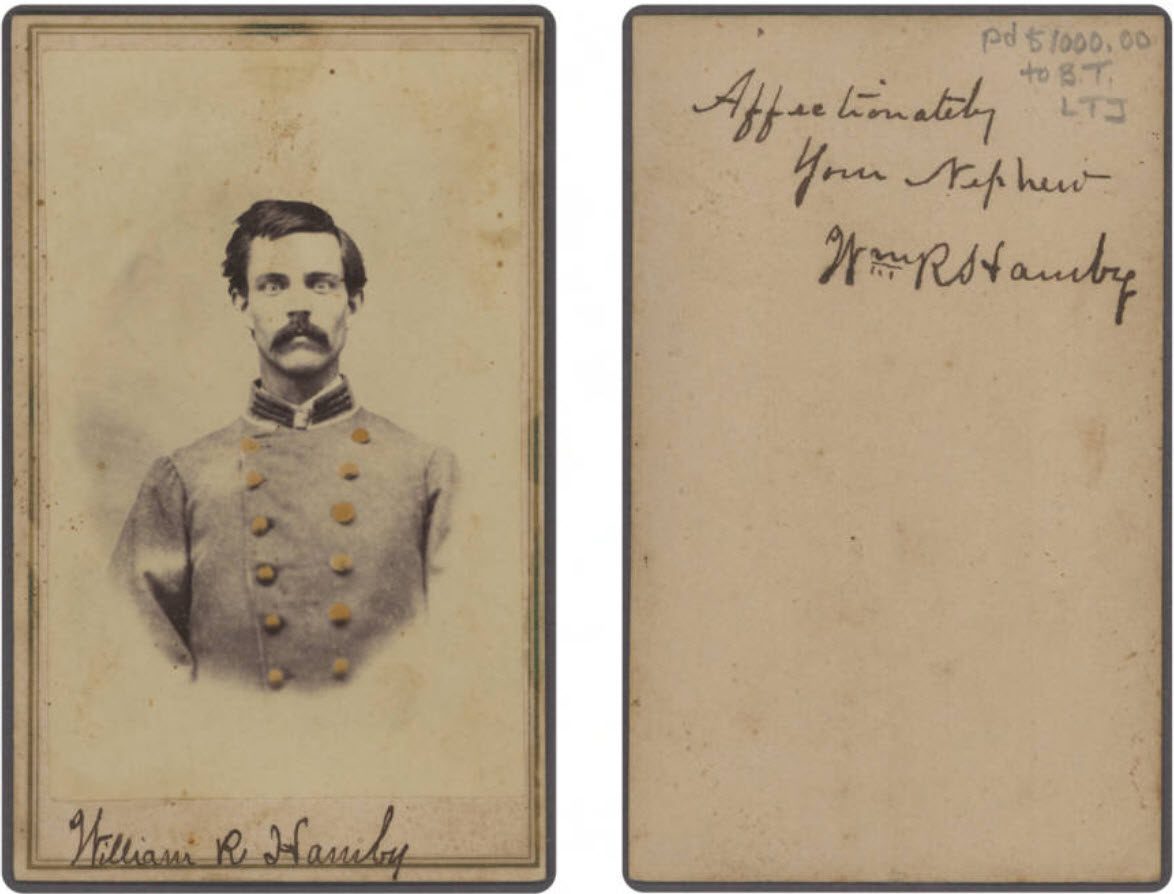 William R Hamby
pd $1000.00
to B.T.
LTJ
Affectionately
Your Nephew
Wm R Hamby